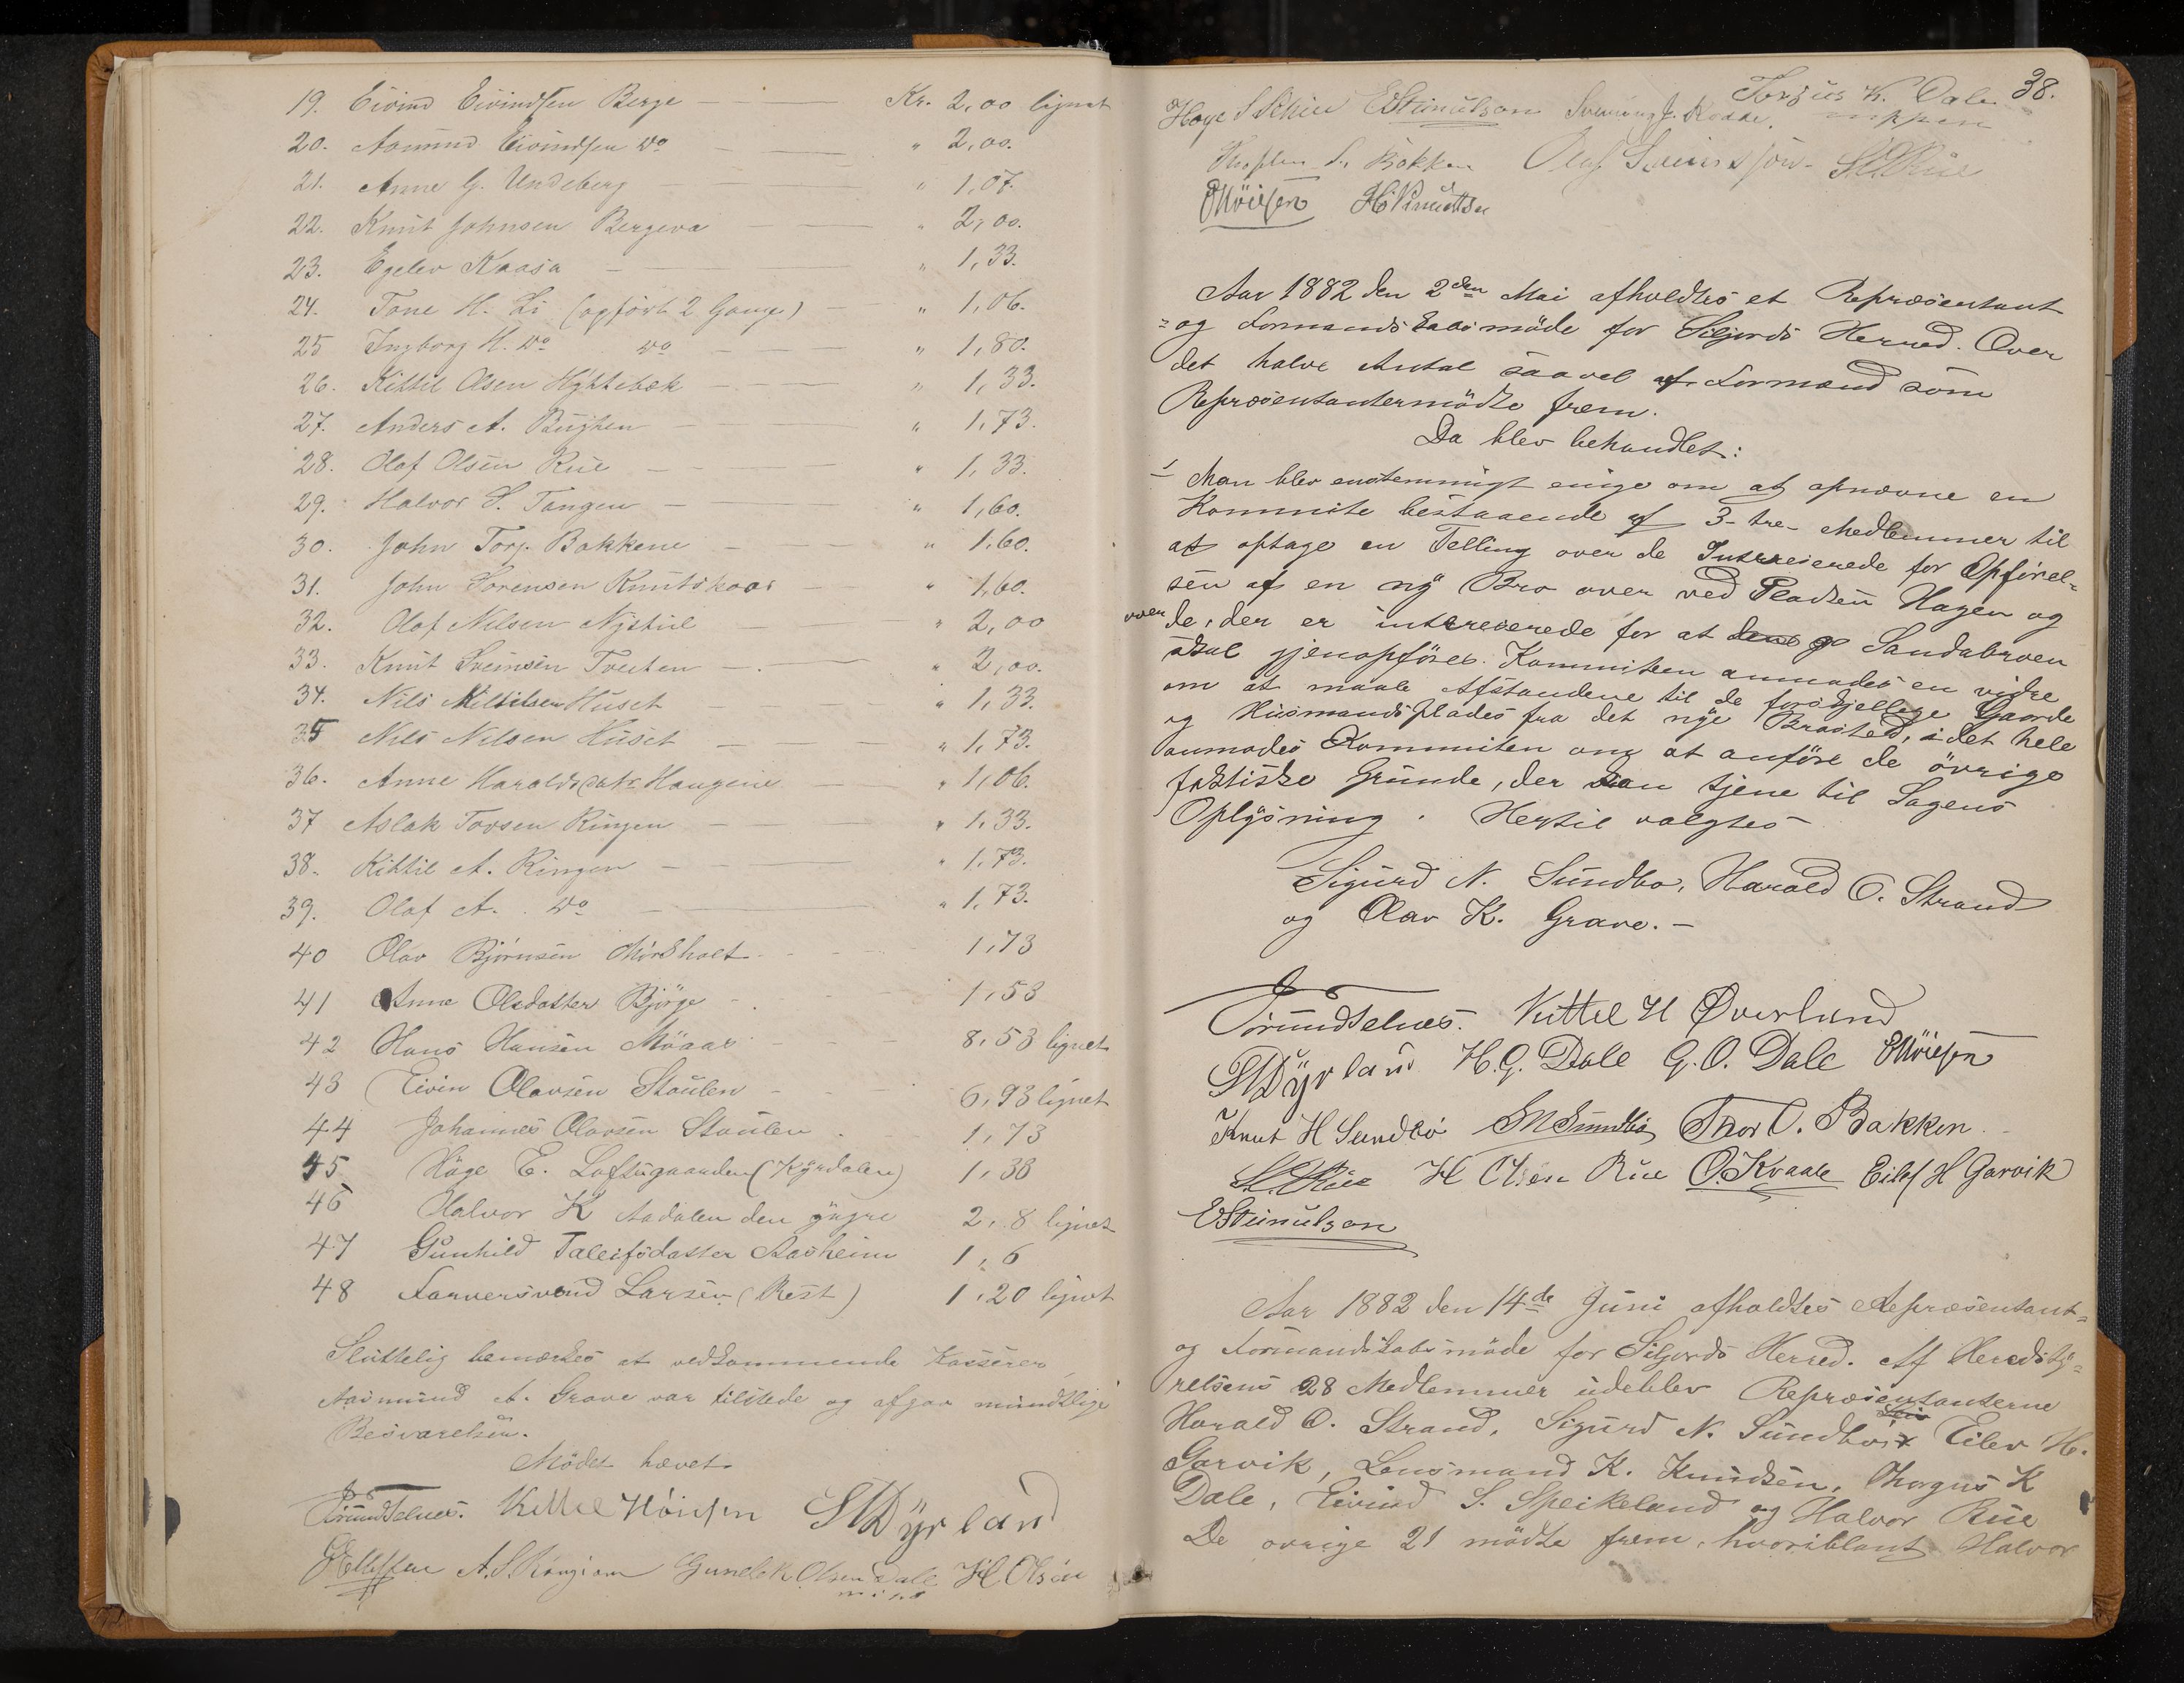 19. Eivind Eivindsen Berge — Kr. 2,00 lignet
20. Aamund Eivindsen do — " 2,00.
21. Anne G. Undeberg — " 1,07.
22. Knut Johnsen Bergeva — " 2,00.
23. Egelev Kaasa — " 1,33.
24. Tone H. Li (opført 2 Gange) — " 1,06.
25 Ingborg H. do do — " 1,80.
26. Kittil Olsen Hyttebæk — " 1,33.
27. Anders A. — " 1,73.
28. Olaf Olsen Rue — " 1,33.
29. Halvor S. Tangen — " 1,60.
30. John Torj. Bakkene — " 1,60.
31. John Sorensen — " 1,60.
32. Olaf Nilsen Nystul — " 2,00
33. Knut Sveinsen Tveiten — " 2,00.
34. Nils Kittilsen Huset — " 1,33.
35 Nils Nilsen Huset — " 1,73.
36. Anne Haraldsdatr. Haugene — " 1,06.
37 Aslak Tovsen Ringen — " 1,33.
38. Kittil A. Ringen — " 1,73.
39. Olaf A. do — " 1,73.
40 Olav Bjørnsen Mörkholt - - - 1,73
41 Anne Olsdatter Bjørge - - 1,53
42 Hans Hansen Möaar - - - 8,53 lignet
43 Eivin Olavsen Staulen - - 6,93 lignet
44 Johannes Olavsen Staulen . - 1,73
45 Höge E. Loftsgaarden (Kyrdalen) 1,38
46 Halvor K Aadalen den yngre 2,8 lignet
47 Gunhild Taleifsdatter Aasheim 1,6
48 Farversvend Larsen (Rest) 1,20 lignet
Sluttelig bemærkes at vedkommende Kasserer
Aasmund A. Grave var tilstede og afgav mundtlige
Besvarelsen.
Mødet hævet.
Kittel Høiesen SHDyrland
A. S. Gunlek Olsen Dale H Olsen
38.
Torjus K. Dale
Høye S EStenulson
S. Bakken Olaf SHRue
OHöiesen HKnudtsen
Aar 1882 den 2den Mai afholdtes et Repræsentant
= og Formandskabsmöde for Siljords Herred. Over
det halve Antal saavel af Formænd som
Repræsentantermödte frem.
Da blev behandlet:
1 Man blev enstemmigt enige om at opnævne en
Kommite bestaaende af 3- tre- Medlemmer til
at optage en Telling over de Intereserede for Opførel=
sen af en ny Bro over ved Pladsen Hagen og
over de, der er intereserede for at Sandabroen
skal gjenopföres. Kommiteen anmodes en vidre
om at maale Afstandene til de forskjellige Gaarde
og Husmandsplades fra det nye Brosted, i det hele
anmodes Kommiten om at anföre de övrige
faktiske Grunde, der kan tjene til Sagens
Oplysning. Hertil valgtes
Sigurd N. Sundbo, Harald O. Strand
og Olav K. Grave. -
Kittel H Øverland
SHDyrland H. G. Dale G. O. Dale OHöiesen
Knut H Sundbö SNSundbö Thor O. Bakken
SHRue H Olsen Rue O. Kvaale Eilef H Garvik
EStenulson
Aar 1882 den 14de Juni afholdtes Repræsentant=
og Formandskabs möde for Siljords Herred. Af Heredsty=
relsens 28 Medlemmer udeblev Repræsentanterne
Harald O. Strand, Sigurd N. Sundbo, Eilev H.
Garvik, Lensmand K. Knudsen, Thorgus K
Dale, Eivind S. Speikeland og Halvor Rue
De ovrige 21 mödte frem, hvoriblant Halvor